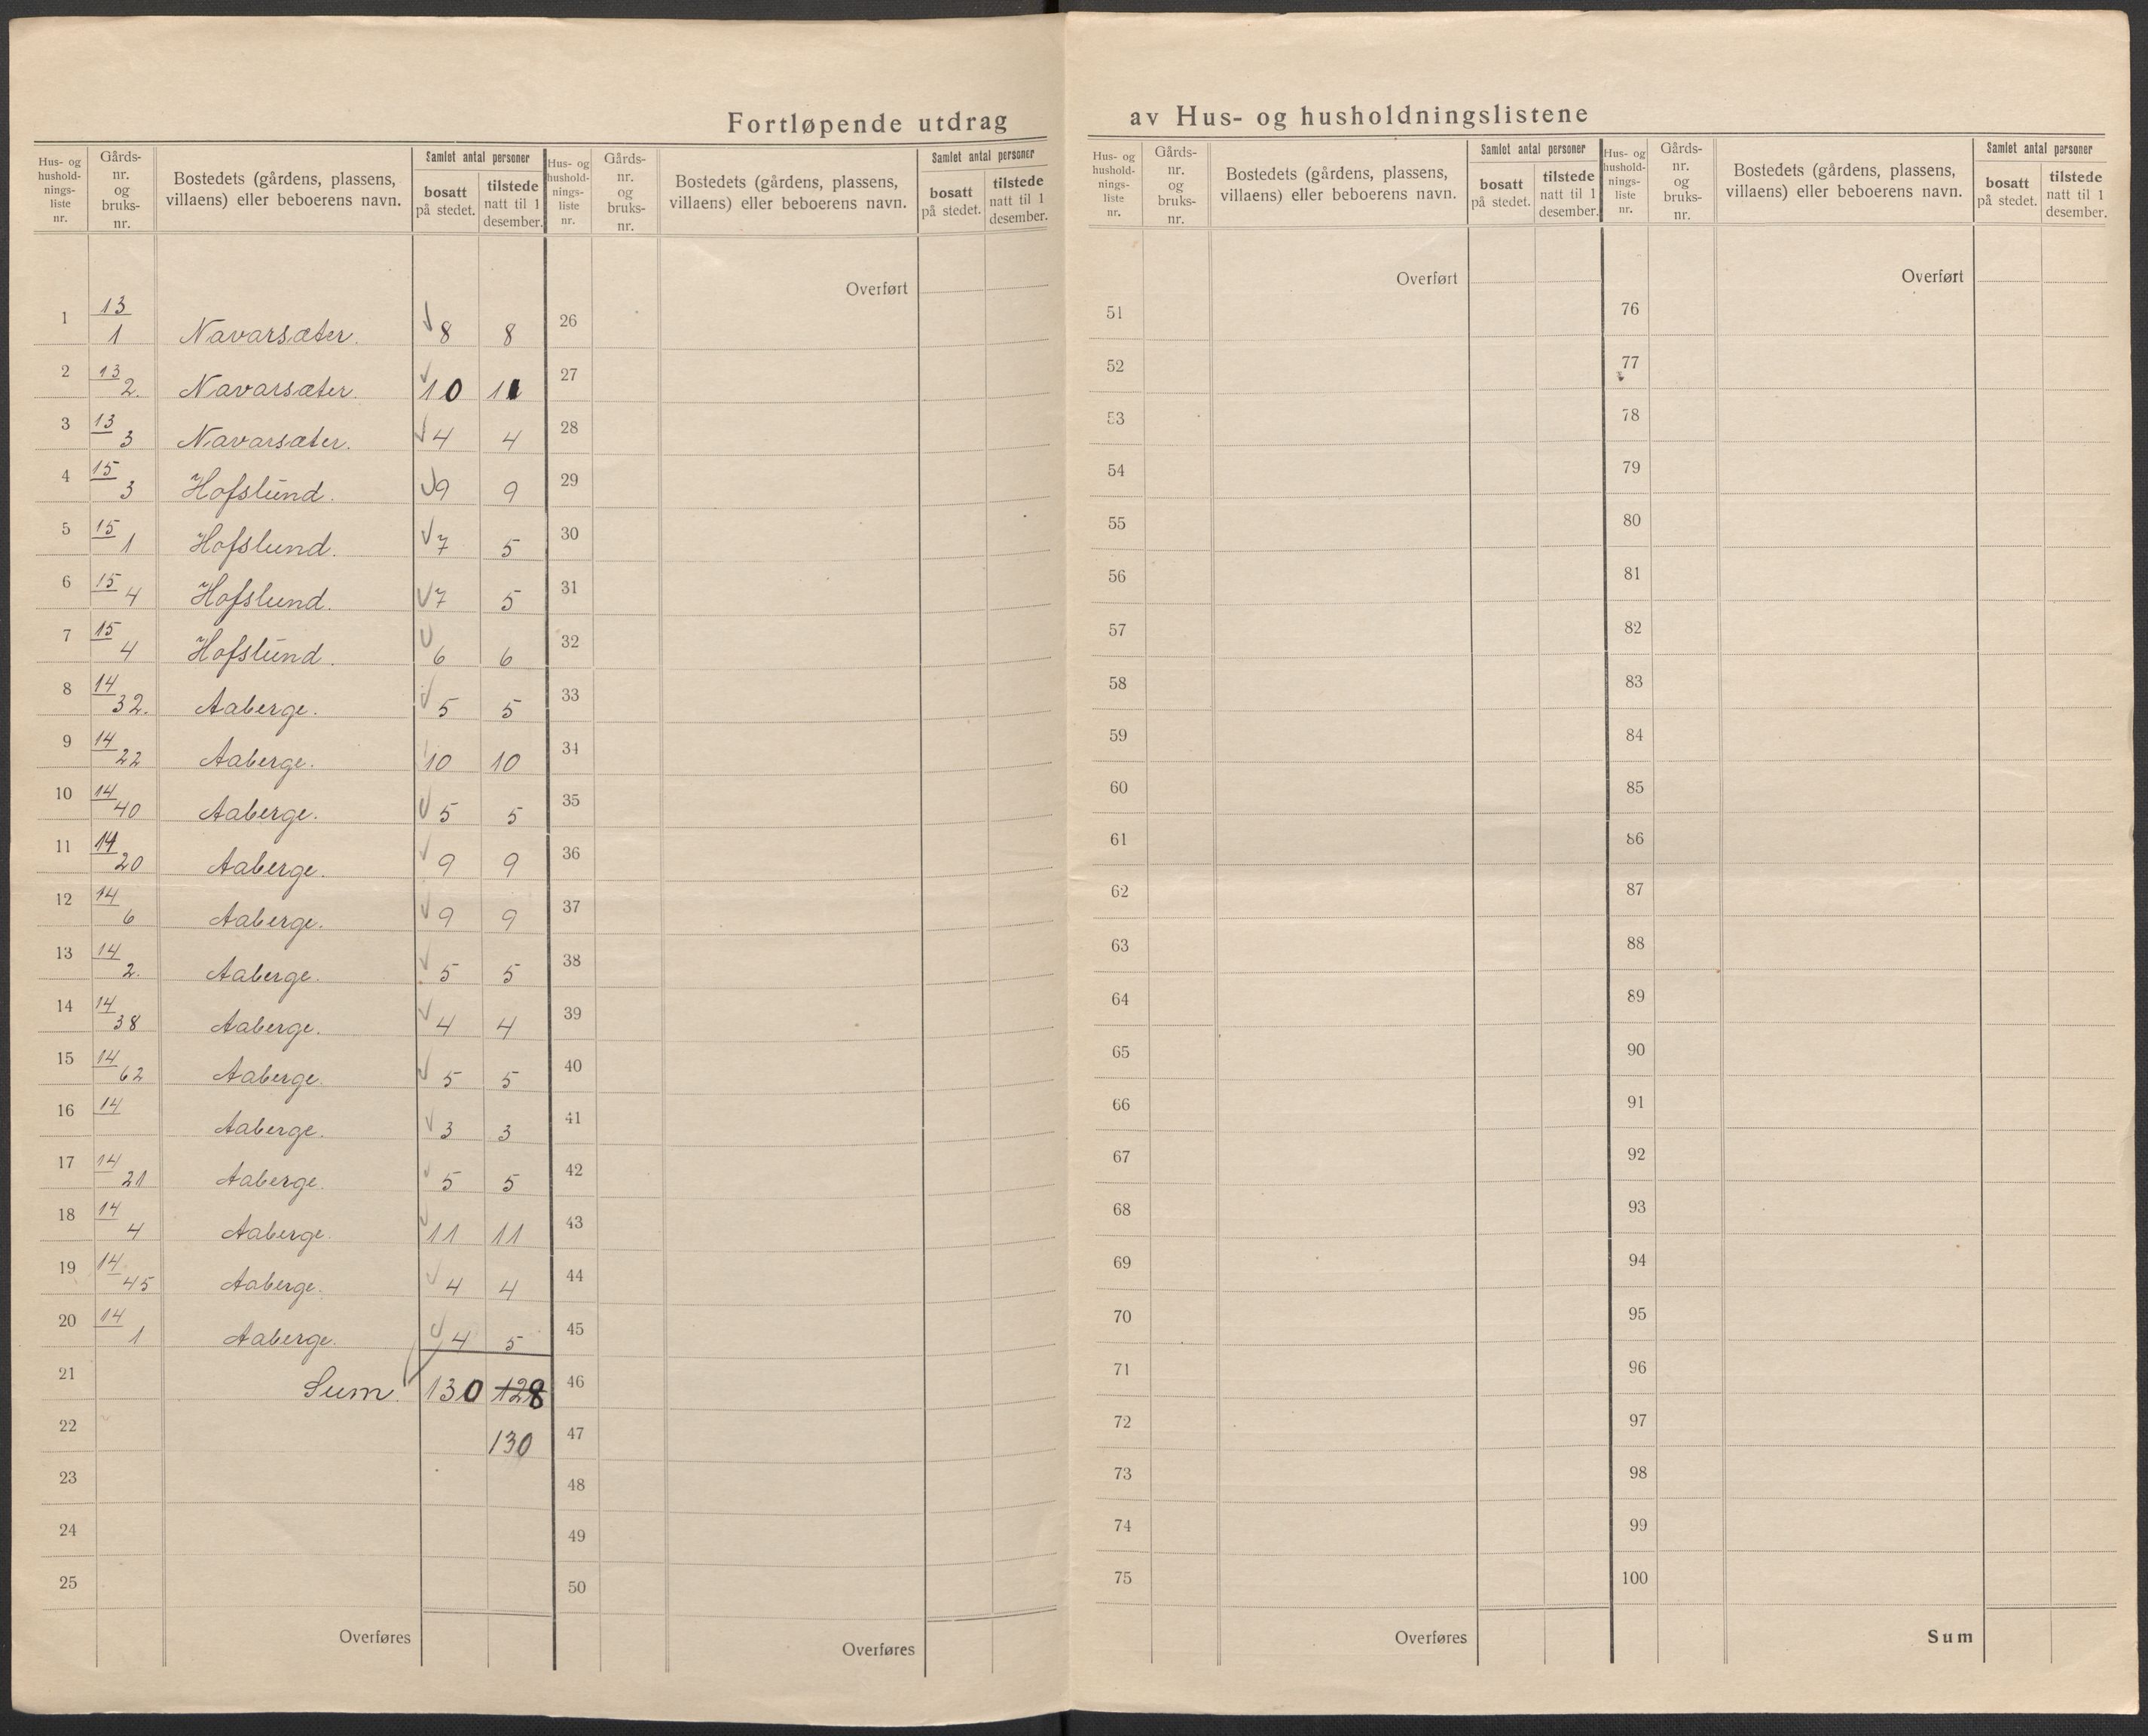 Fortløpende utdrag av Hus- og husholdningslistene
Hus- og hushold-nings-liste nr. | Gårds-nr. og bruks-nr. | Bostedets (gårdens, plassens, villaens) eller beboerens navn. | Samlet antal personer | bosatt på stedet. | tilstede natt til 1 desember.
1 13/1 Navarsæter. 8 8
2 13/2. Navarsæter. 10 11
3 13/3 Navarsæter. 4 4
4 15/3 Hofslund. 9 9
5 15/1 Hofslund. 7 5
6 15/4 Hofslund. 7 5
7 15/4 Hofslund. 6 6
8 14/32. Aaberge. 5 5
9 14/22 Aaberge. 10 10
10 14/40 Aaberge. 5 5
11 14/20 Aaberge. 9 9
12 14/6 Aaberge. 9 9
13 14/2. Aaberge. 5 5
14 14/38 Aaberge. 4 4
15 14/62 Aaberge. 5 5
16 14 Aaberge. 3 3
17 14/21 Aaberge. 5 5
18 14/4 Aaberge. 11 11
19 14/45 Aaberge. 4 4
20 14/1 Aaberge. 4 5
21 Sum. 130 128
22 130
23
24
25
Overføres
Hus- og hushold-nings-liste nr. | Gårds-nr. og bruks-nr. | Bostedets (gårdens, plassens, villaens) eller beboerens navn. | Samlet antal personer | bosatt på stedet. | tilstede natt til 1 desember.
Overført
26
27
28
29
30
31
32
33
34
35
36
37
38
39
40
41
42
43
44
45
46
47
48
49
50
Overføres
Hus- og hushold-nings-liste nr. | Gårds-nr. og bruks-nr. | Bostedets (gårdens, plassens, villaens) eller beboerens navn. | Samlet antal personer | bosatt på stedet. | tilstede natt til 1 desember.
Overført
51
52
53
54
55
56
57
58
59
60
61
62
63
64
65
66
67
68
69
70
71
72
73
74
75
Overføres
Hus- og hushold-nings-liste nr. | Gårds-nr. og bruks-nr. | Bostedets (gårdens, plassens, villaens) eller beboerens navn. | Samlet antal personer | bosatt på stedet. | tilstede natt til 1 desember.
Overført
76
77
78
79
80
81
82
83
84
85
86
87
88
89
90
91
92
93
94
95
96
97
98
99
100
Sum